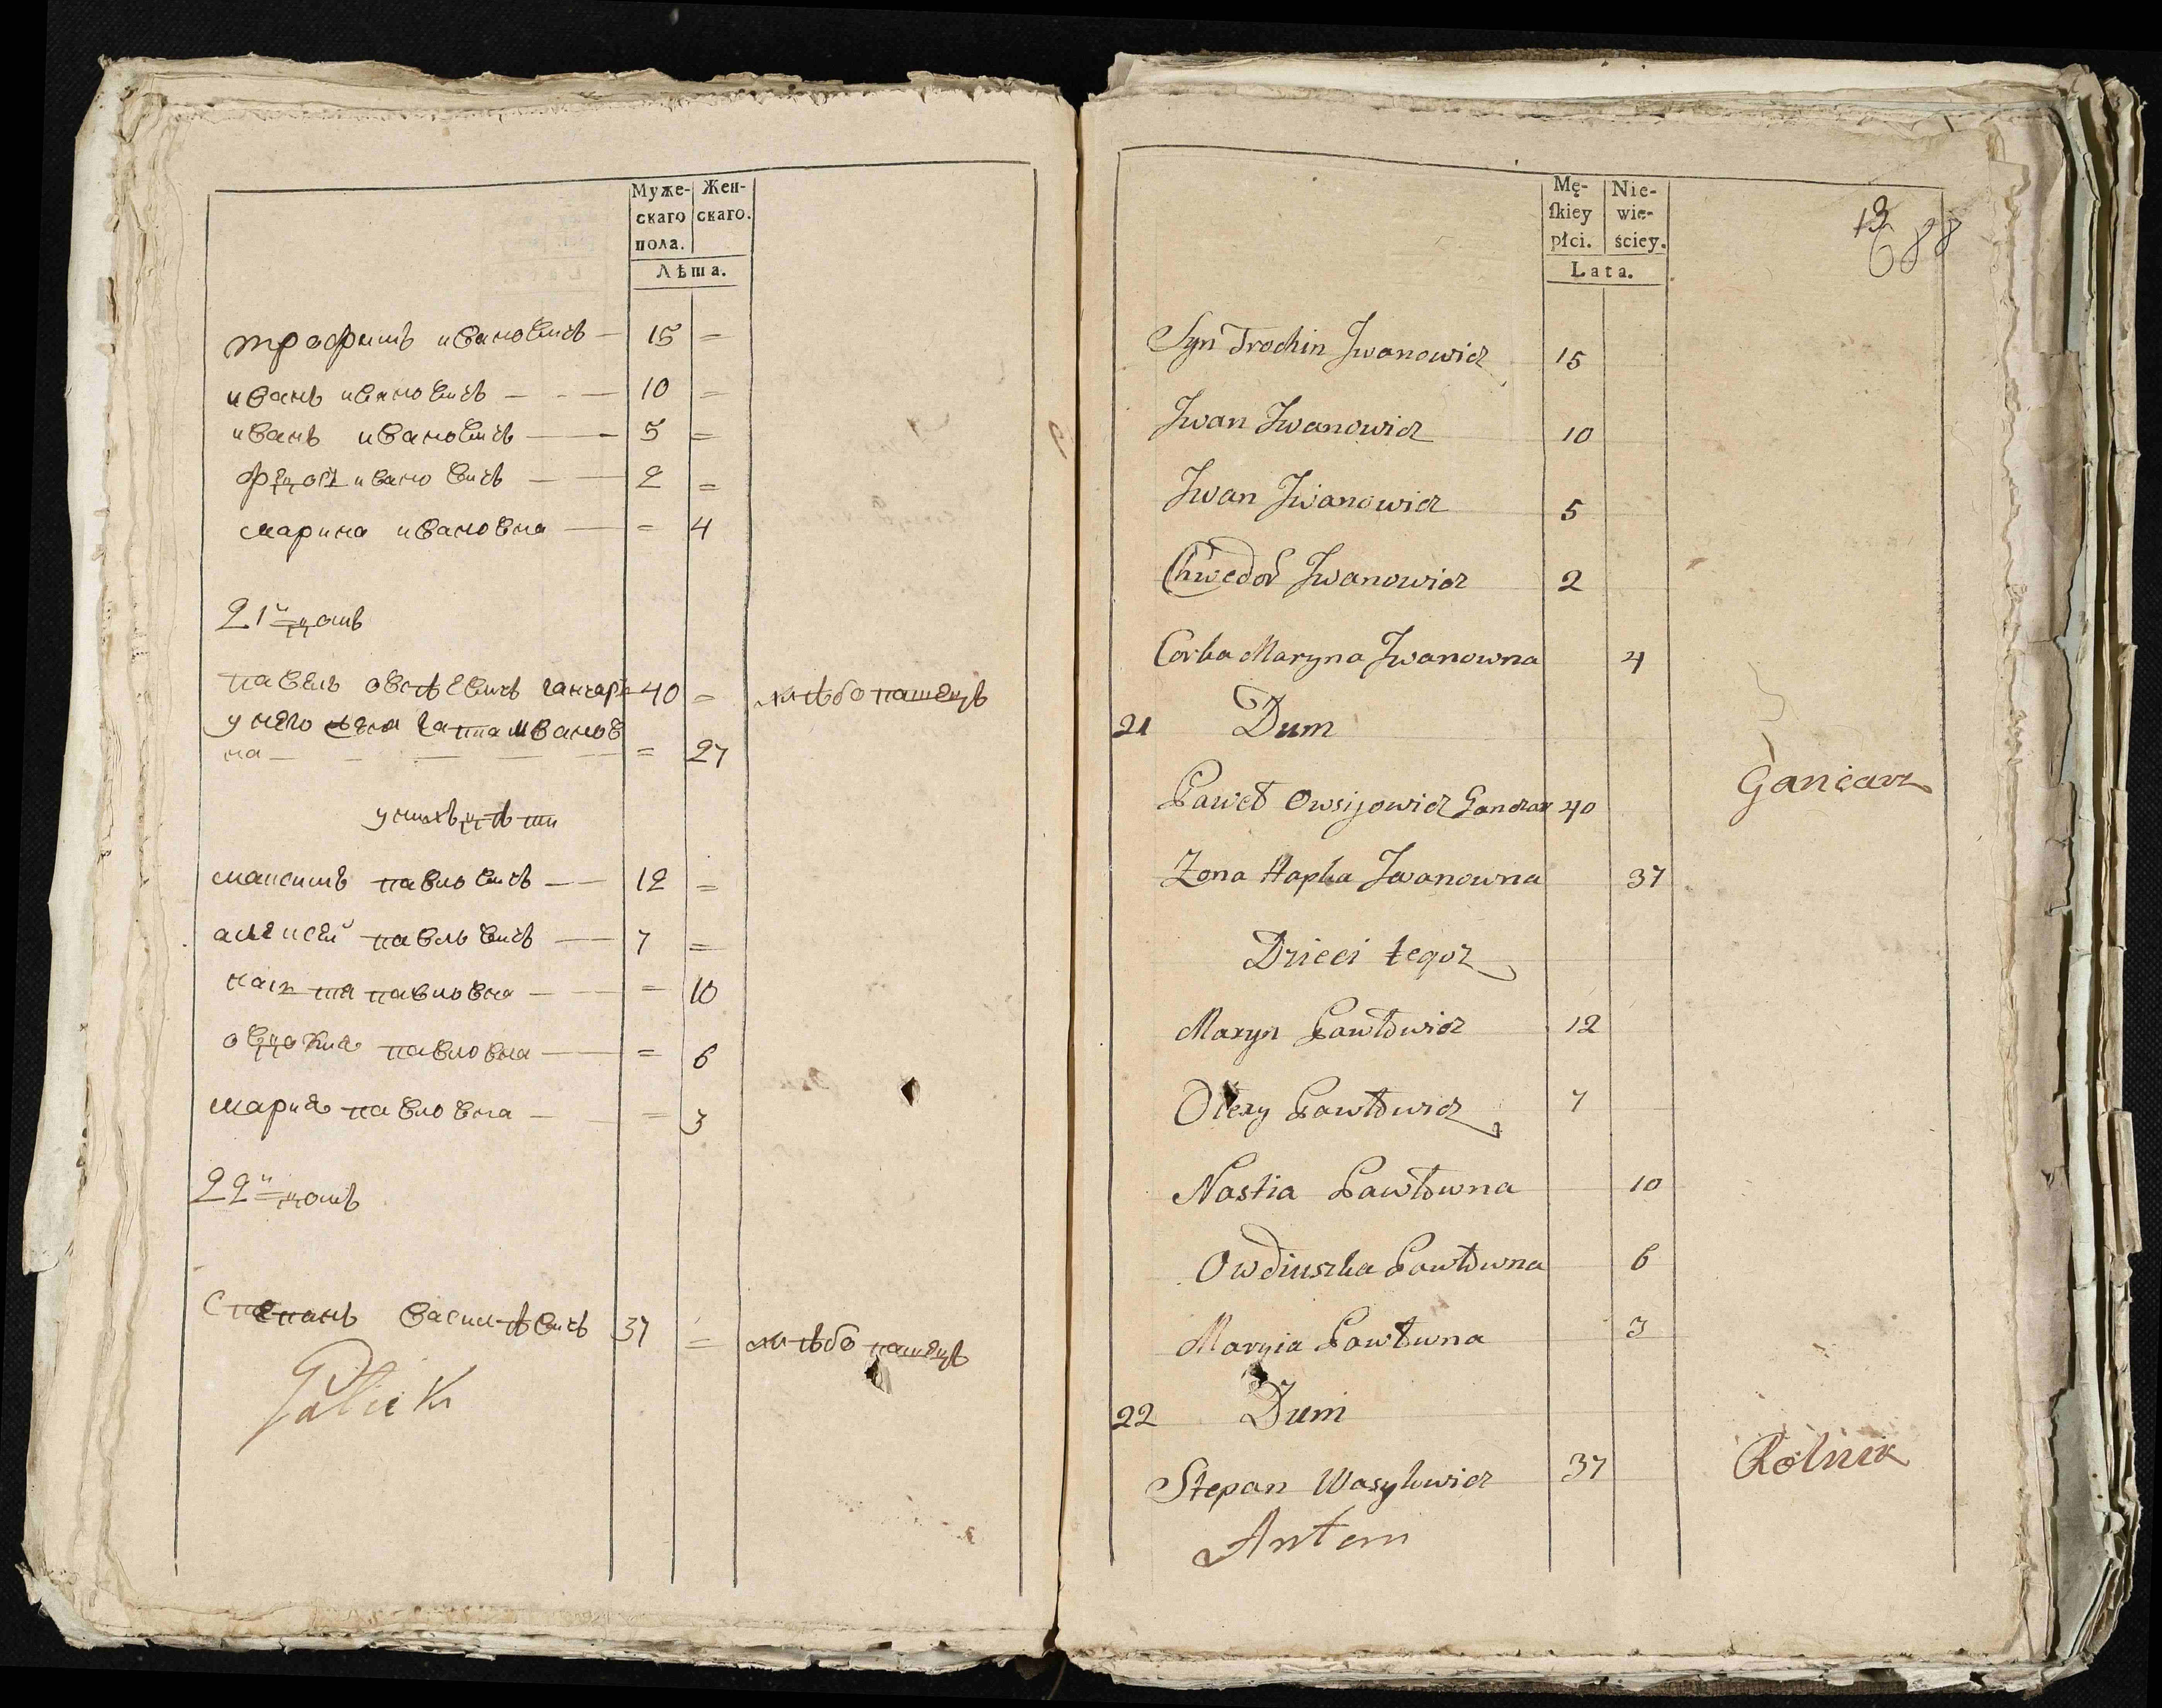 Муже-
скаго
пола.
Жен-
скаго.
Лѣта.
трофимъ ивановичъ — 15 =
иванъ ивановичъ — - — 10 =
иванъ ивановичъ — 5 =
ивановичъ — 2 =
марина ивановна — = 4
21й домъ
павелъ овсѣевичъ ганчаръ 40 = хлѣбопашецъ
у него жена гаппа иванов
на — = 27
у нихъ дѣти
максимъ павловичъ — 12 =
алексей павловичъ — 7 =
настя павловна — = 10
овдокия павловна — = 6
мария павловна — = 3
22й домъ
степанъ василѣвичъ 37 = хлѣбопашецъ
Mę-
ſkiey
płci.
Nie-
wie-
ściey.
Lata.
13
688
Syn Trochin Jwanowicz 15
Jwan Jwanowicz 10
Jwan Jwanowicz 5
Chwedor Jwanowicz 2
Corka Maryna Jwanowna 4
21 Dum
Paweł Owsijowicz Ganczar 40 Gancarz
Zona Hapka Jwanowna 37
Dzieci tegoz
Maxym Pawłowicz 12
Olexy Pawłowicz 7
Nastia Pawłowna 10
Owdiuszka Pawłowna 6
Maryia Pawłowna 3
22 Dum
Stepan Wasylowicz 37 Rolnik
Antoni